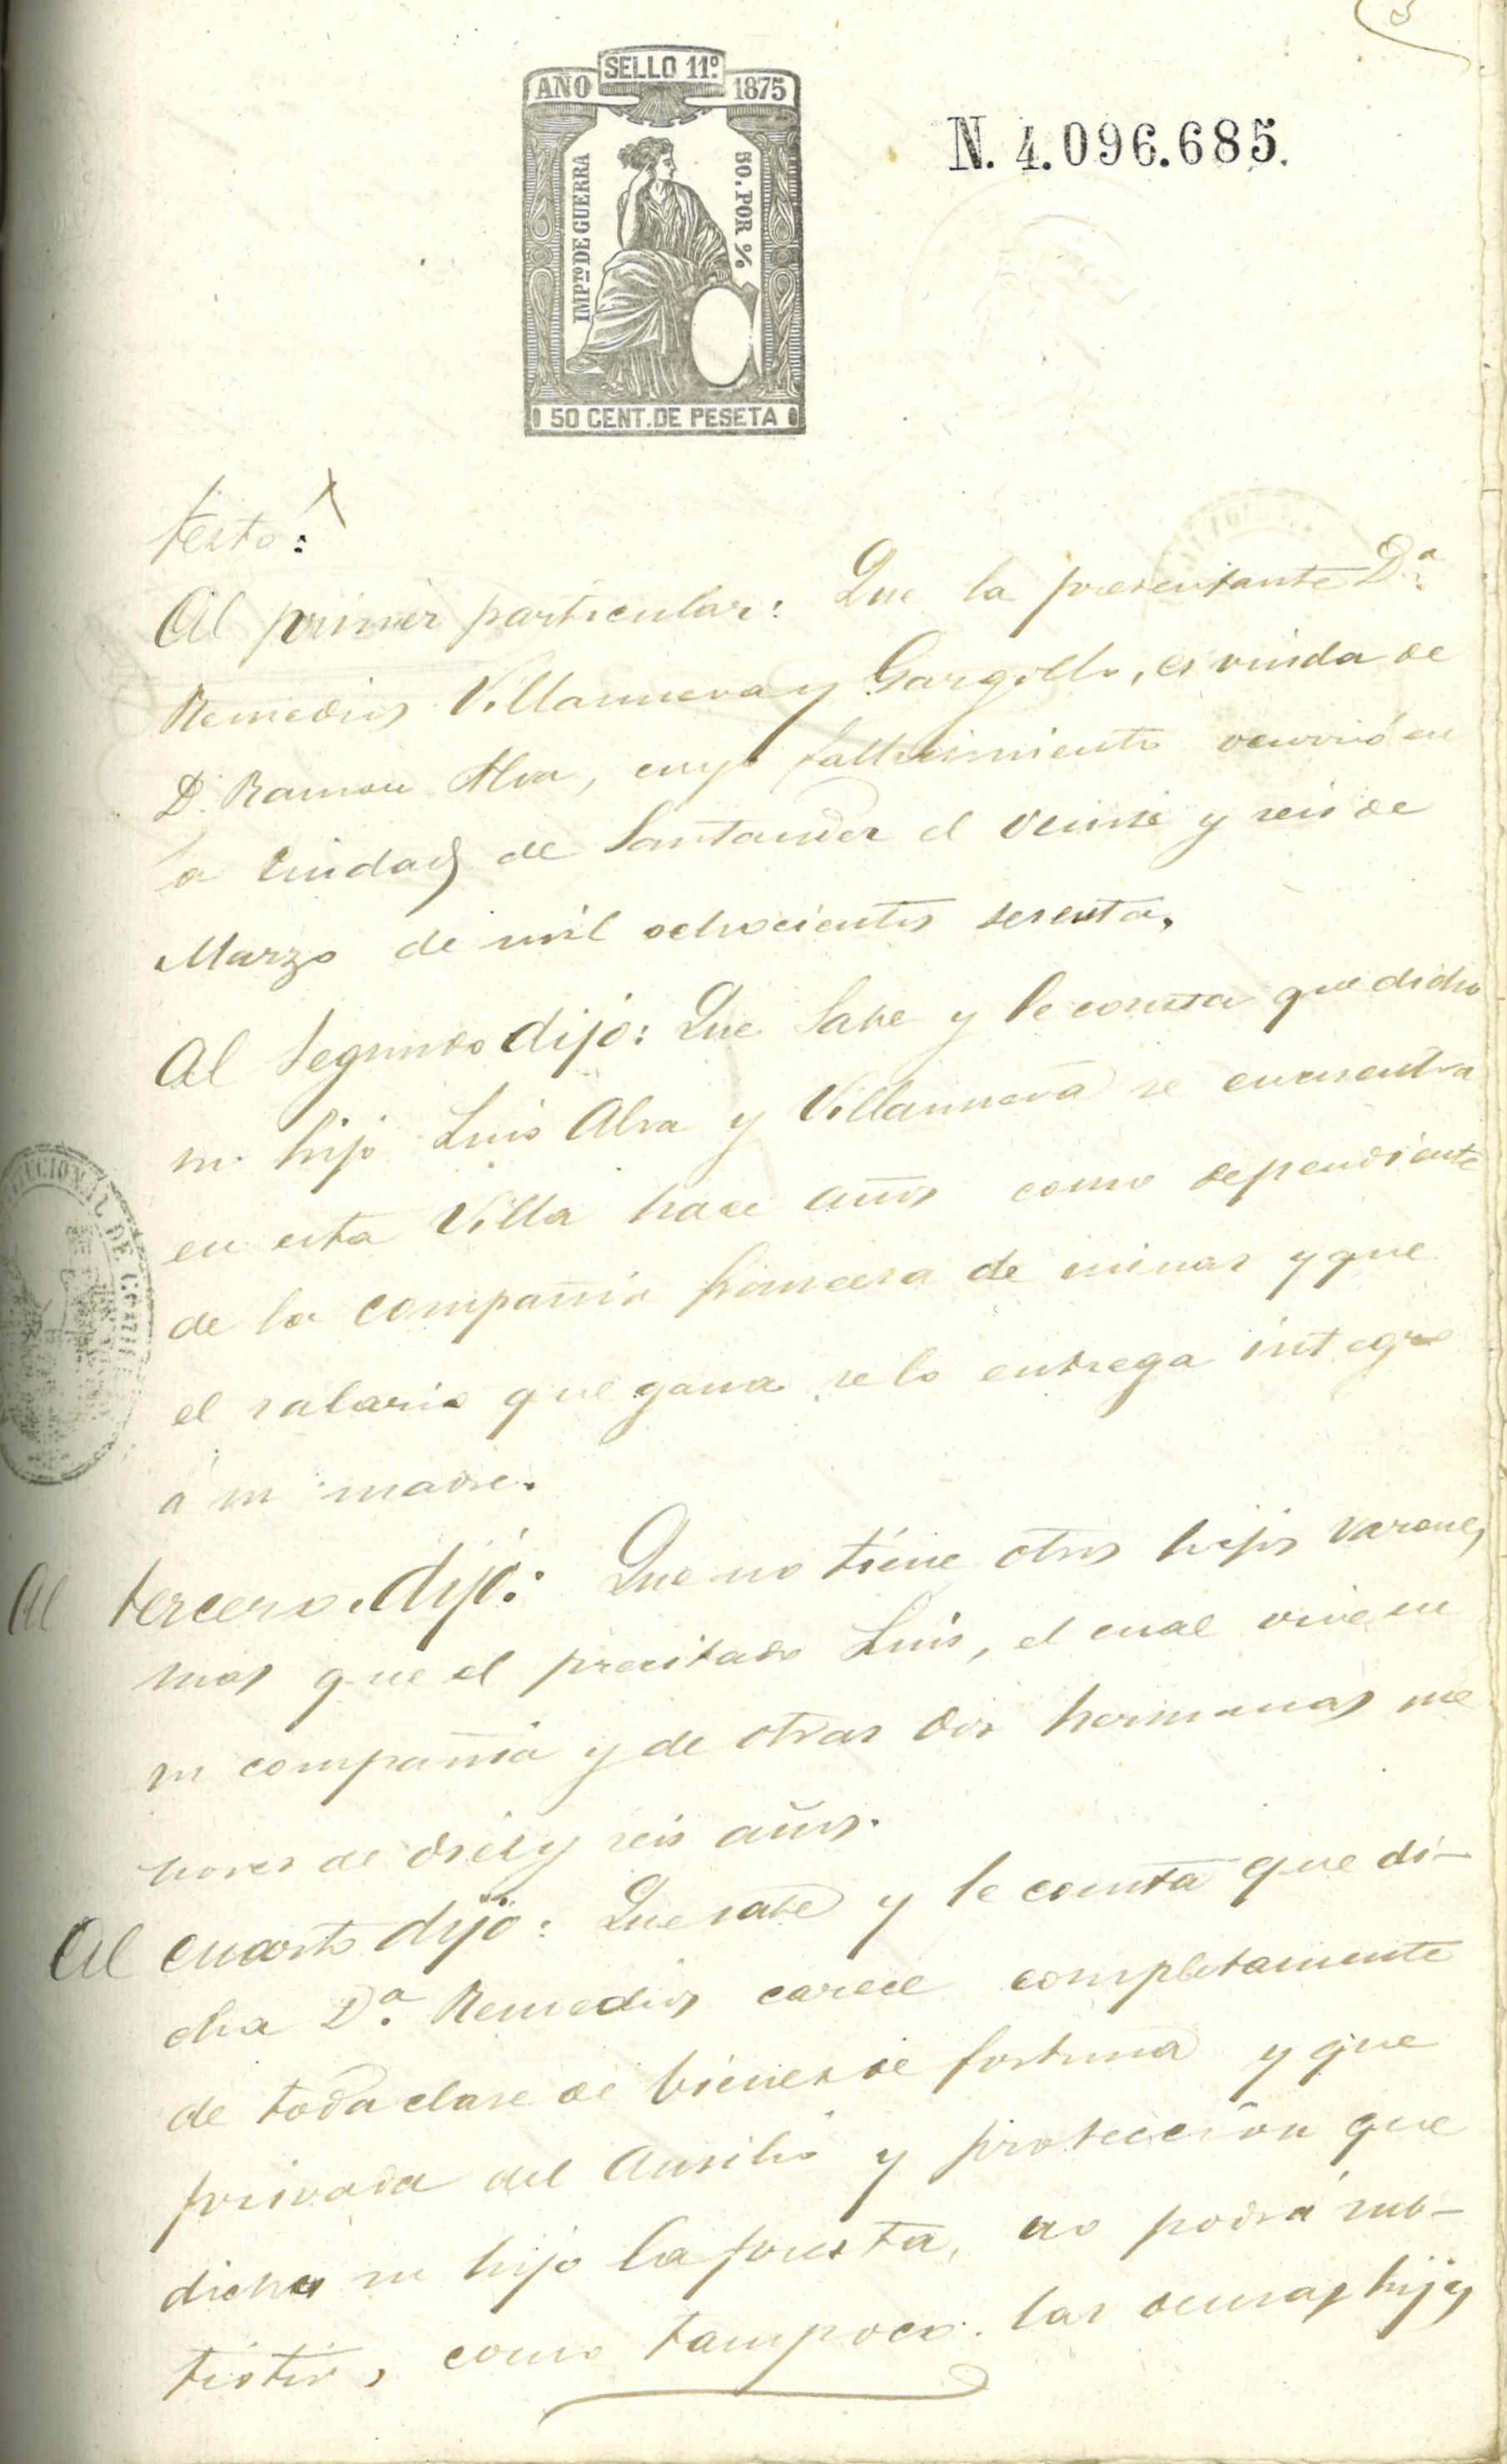 5
SELLO 11º
AÑO 1875
IMPTO DE GUERRA
50. POR %
50 CENT. DE PESETA
N. 4.096.685.
testo:
Al primer particular: Que la presentante D.ª
Remedios Villanueva y Gargollo, es viuda de
D. Ramon Alva, cuyo fallecimiento ocurrió en
la Ciudad de Santander el veinte y seis de
Marzo de mil ochocientos sesenta.
Al Segundo dijo: Que Sabe y le consta que dicho
su hijo Luis Alva y Villanueva se encuentra
en esta Villa hace años como dependiente
de la Compañia francesa de minas y que
el salario que gana se lo entrega integro
á su madre.
Al tercero dijo: Que no tiene otros hijos varones
mas que el precitado Luis, el cual vive en
su compañia y de otras dos hermanas me
nores de diez y seis años.
Al cuarto dijo: Que sabe y le consta que di-
cha D.ª Remedios carece completamente
de toda clase de bienes de fortuna y que
privada del Ausilio y proteccion que
dicho su hijo la presta, no podrá sub-
sistir, como tampoco las demas hijas
CIONAL DE